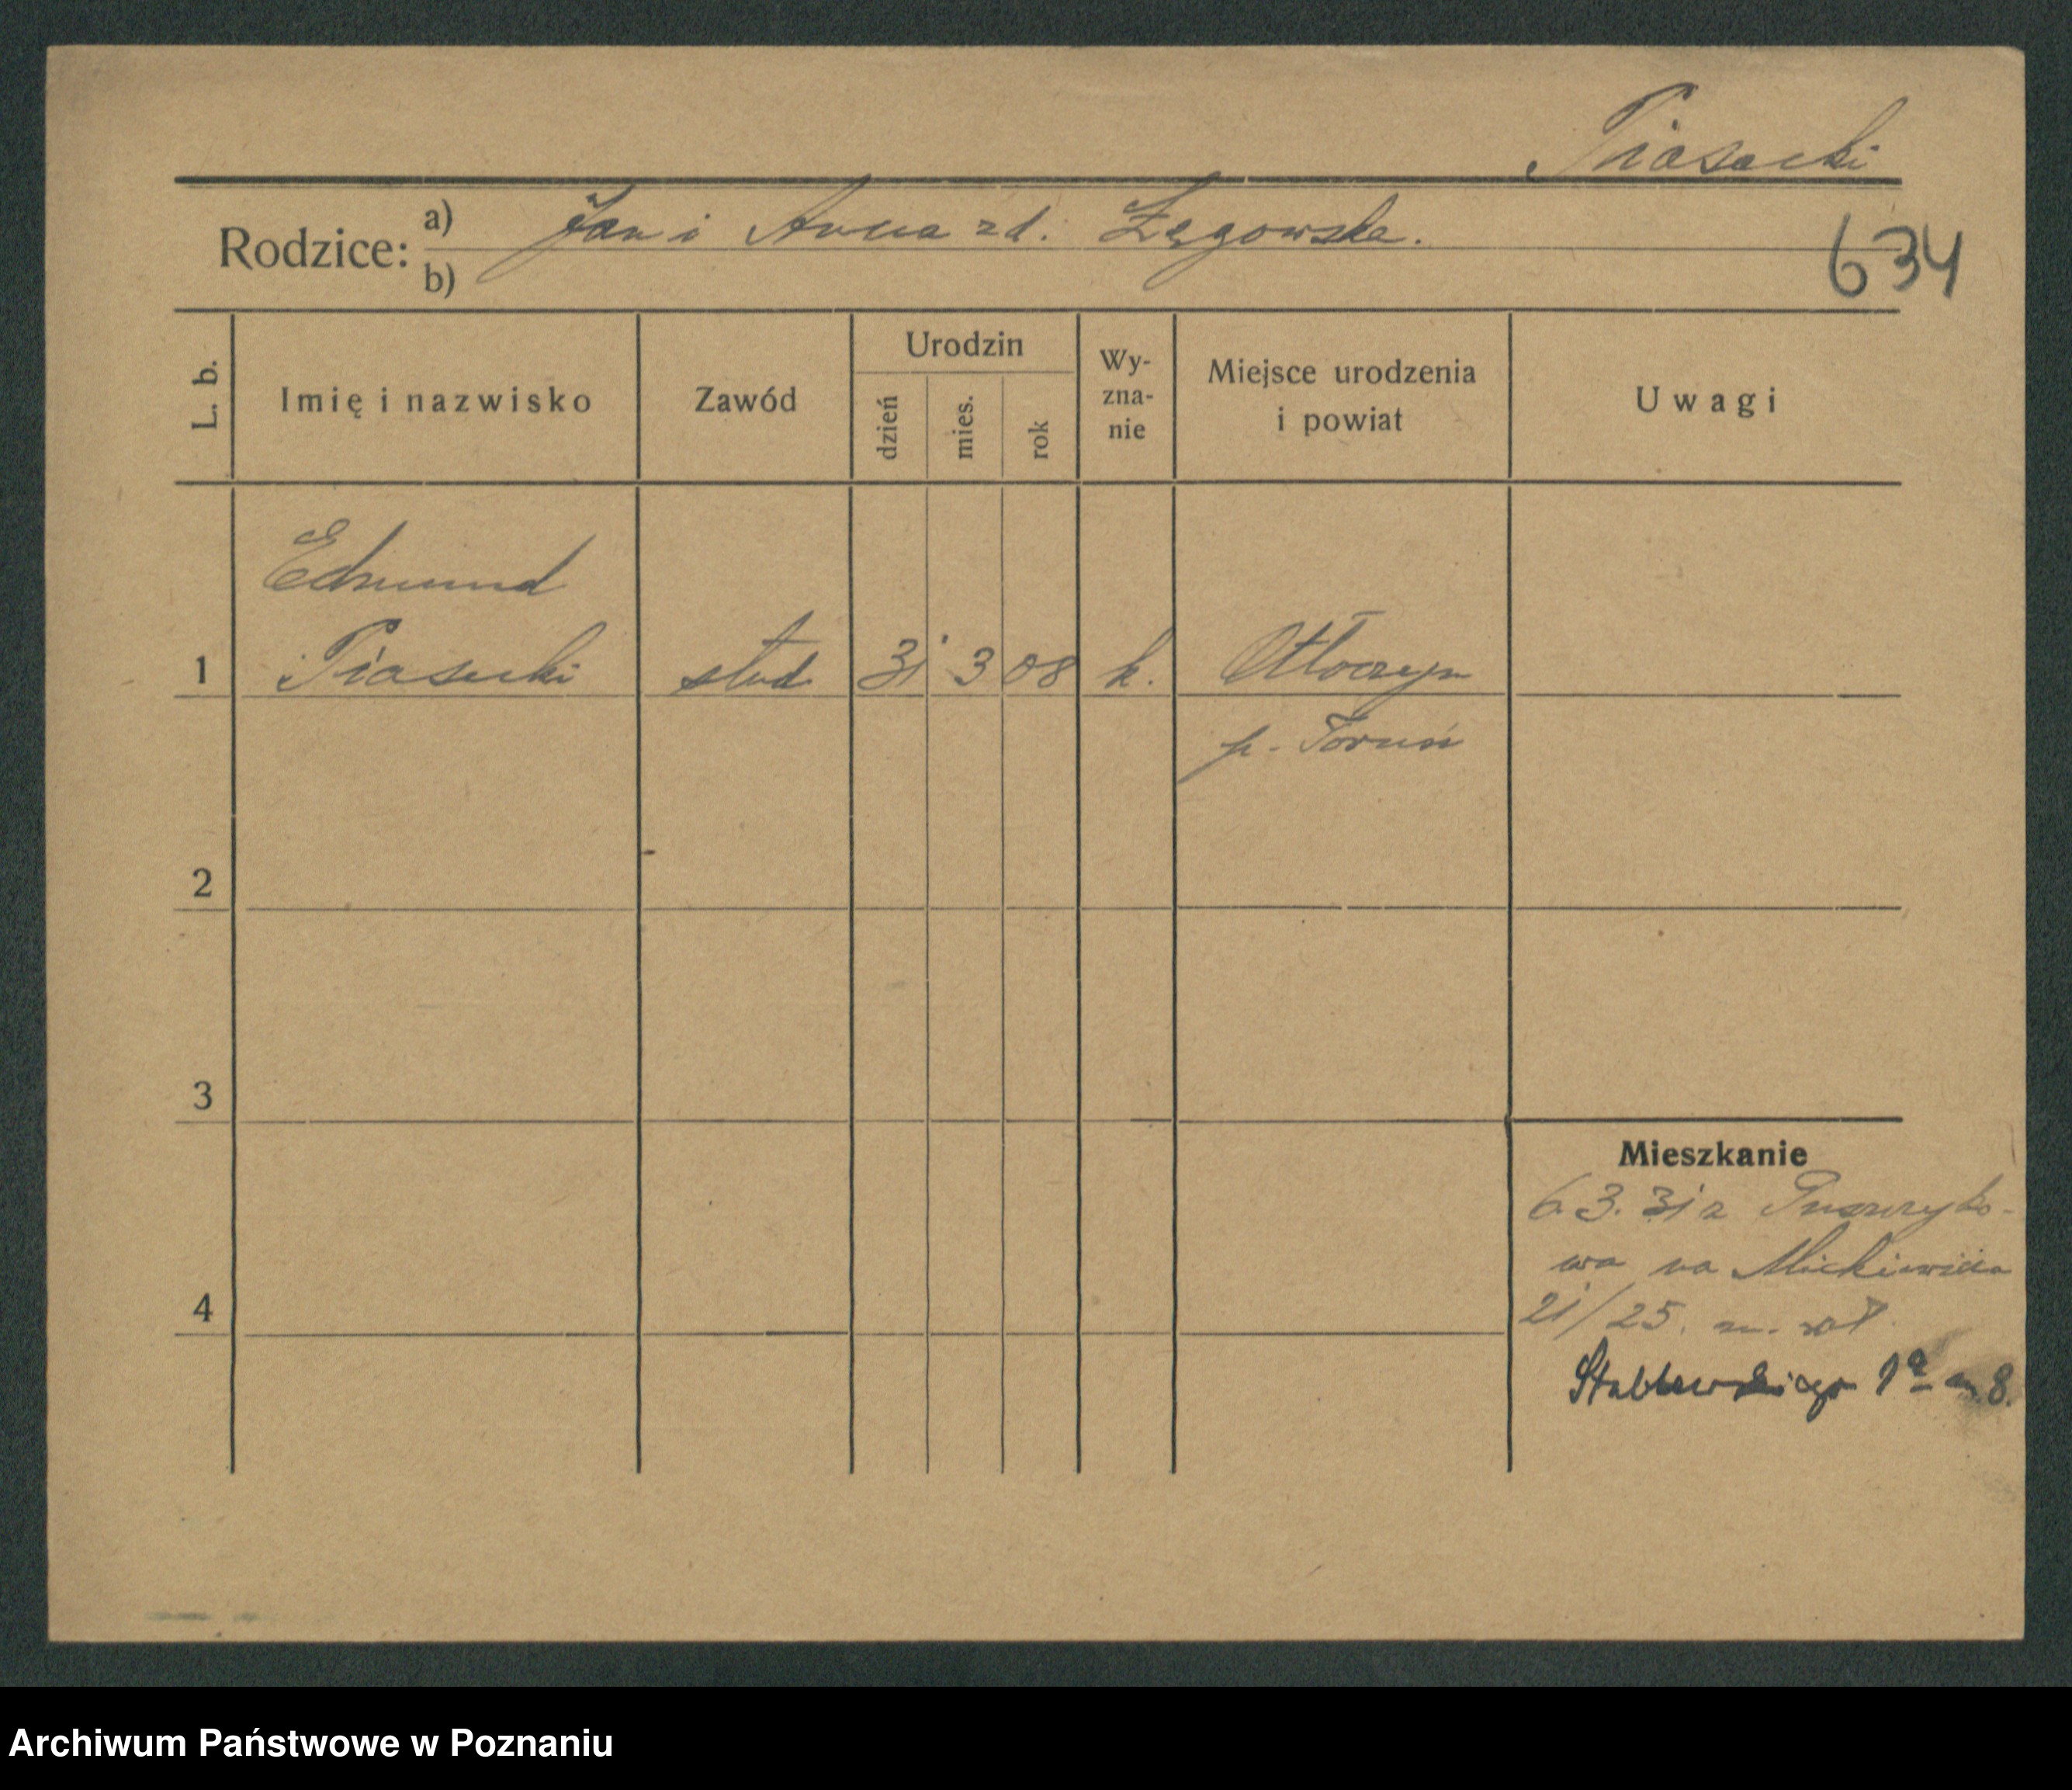 Piasecki
Rodzice: a) Jan i Anna zd. Zęgowska.
b)
634
L. b. Imię i nazwisko Zawód Urodzin dzień mies. rok Wy-zna-nie Miejsce urodzenia i powiat Uwagi
Edmund
1 Piasecki stud. 31 3 08 k. Otłoczyn
p. Toruń
2
3
Mieszkanie
6.3.31 z Puszczyko-
wa na Mickiewicza
4
21/25.
Stablewskiego m. 8.
Archiwum Państwowe w Poznaniu